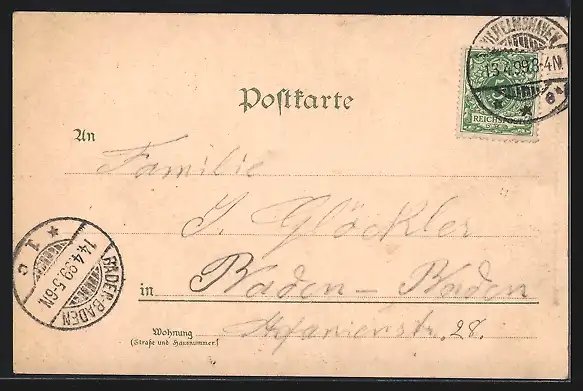 WILHELMSHAVEN
13.4.99.3-4N.
e*
REICHSPOST
Postkarte
An
Familie
J. Glöckler
in Baden-Baden
Stefanienstr. 28.
Wohnung
(Straße und Hausnummer)
BADEN-BADEN
14.4.99.5-6N.
* 1 c